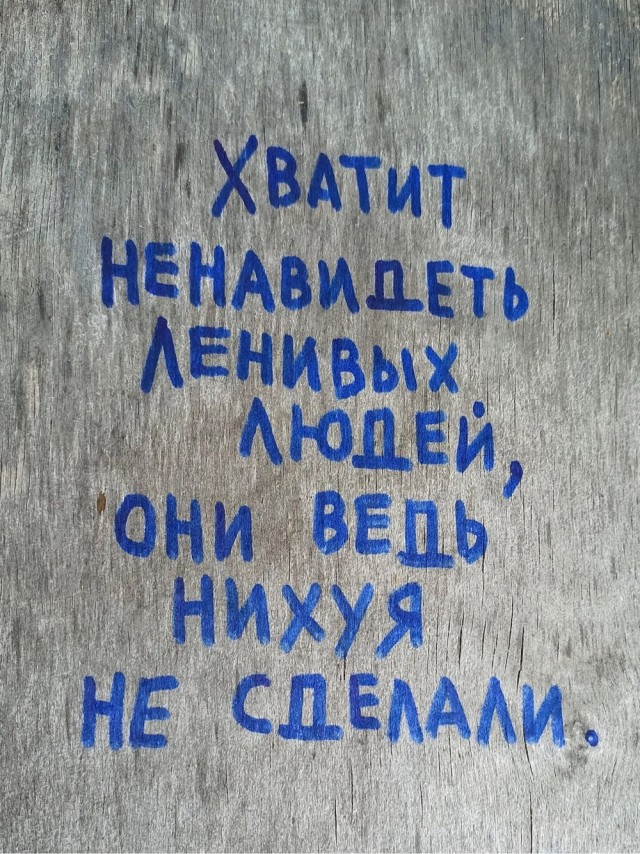 ХВАТИТ
НЕНАВИДЕТЬ
ЛЕНИВЫХ
ЛЮДЕЙ,
ОНИ ВЕДЬ
НИХУЯ
НЕ СДЕЛАЛИ.